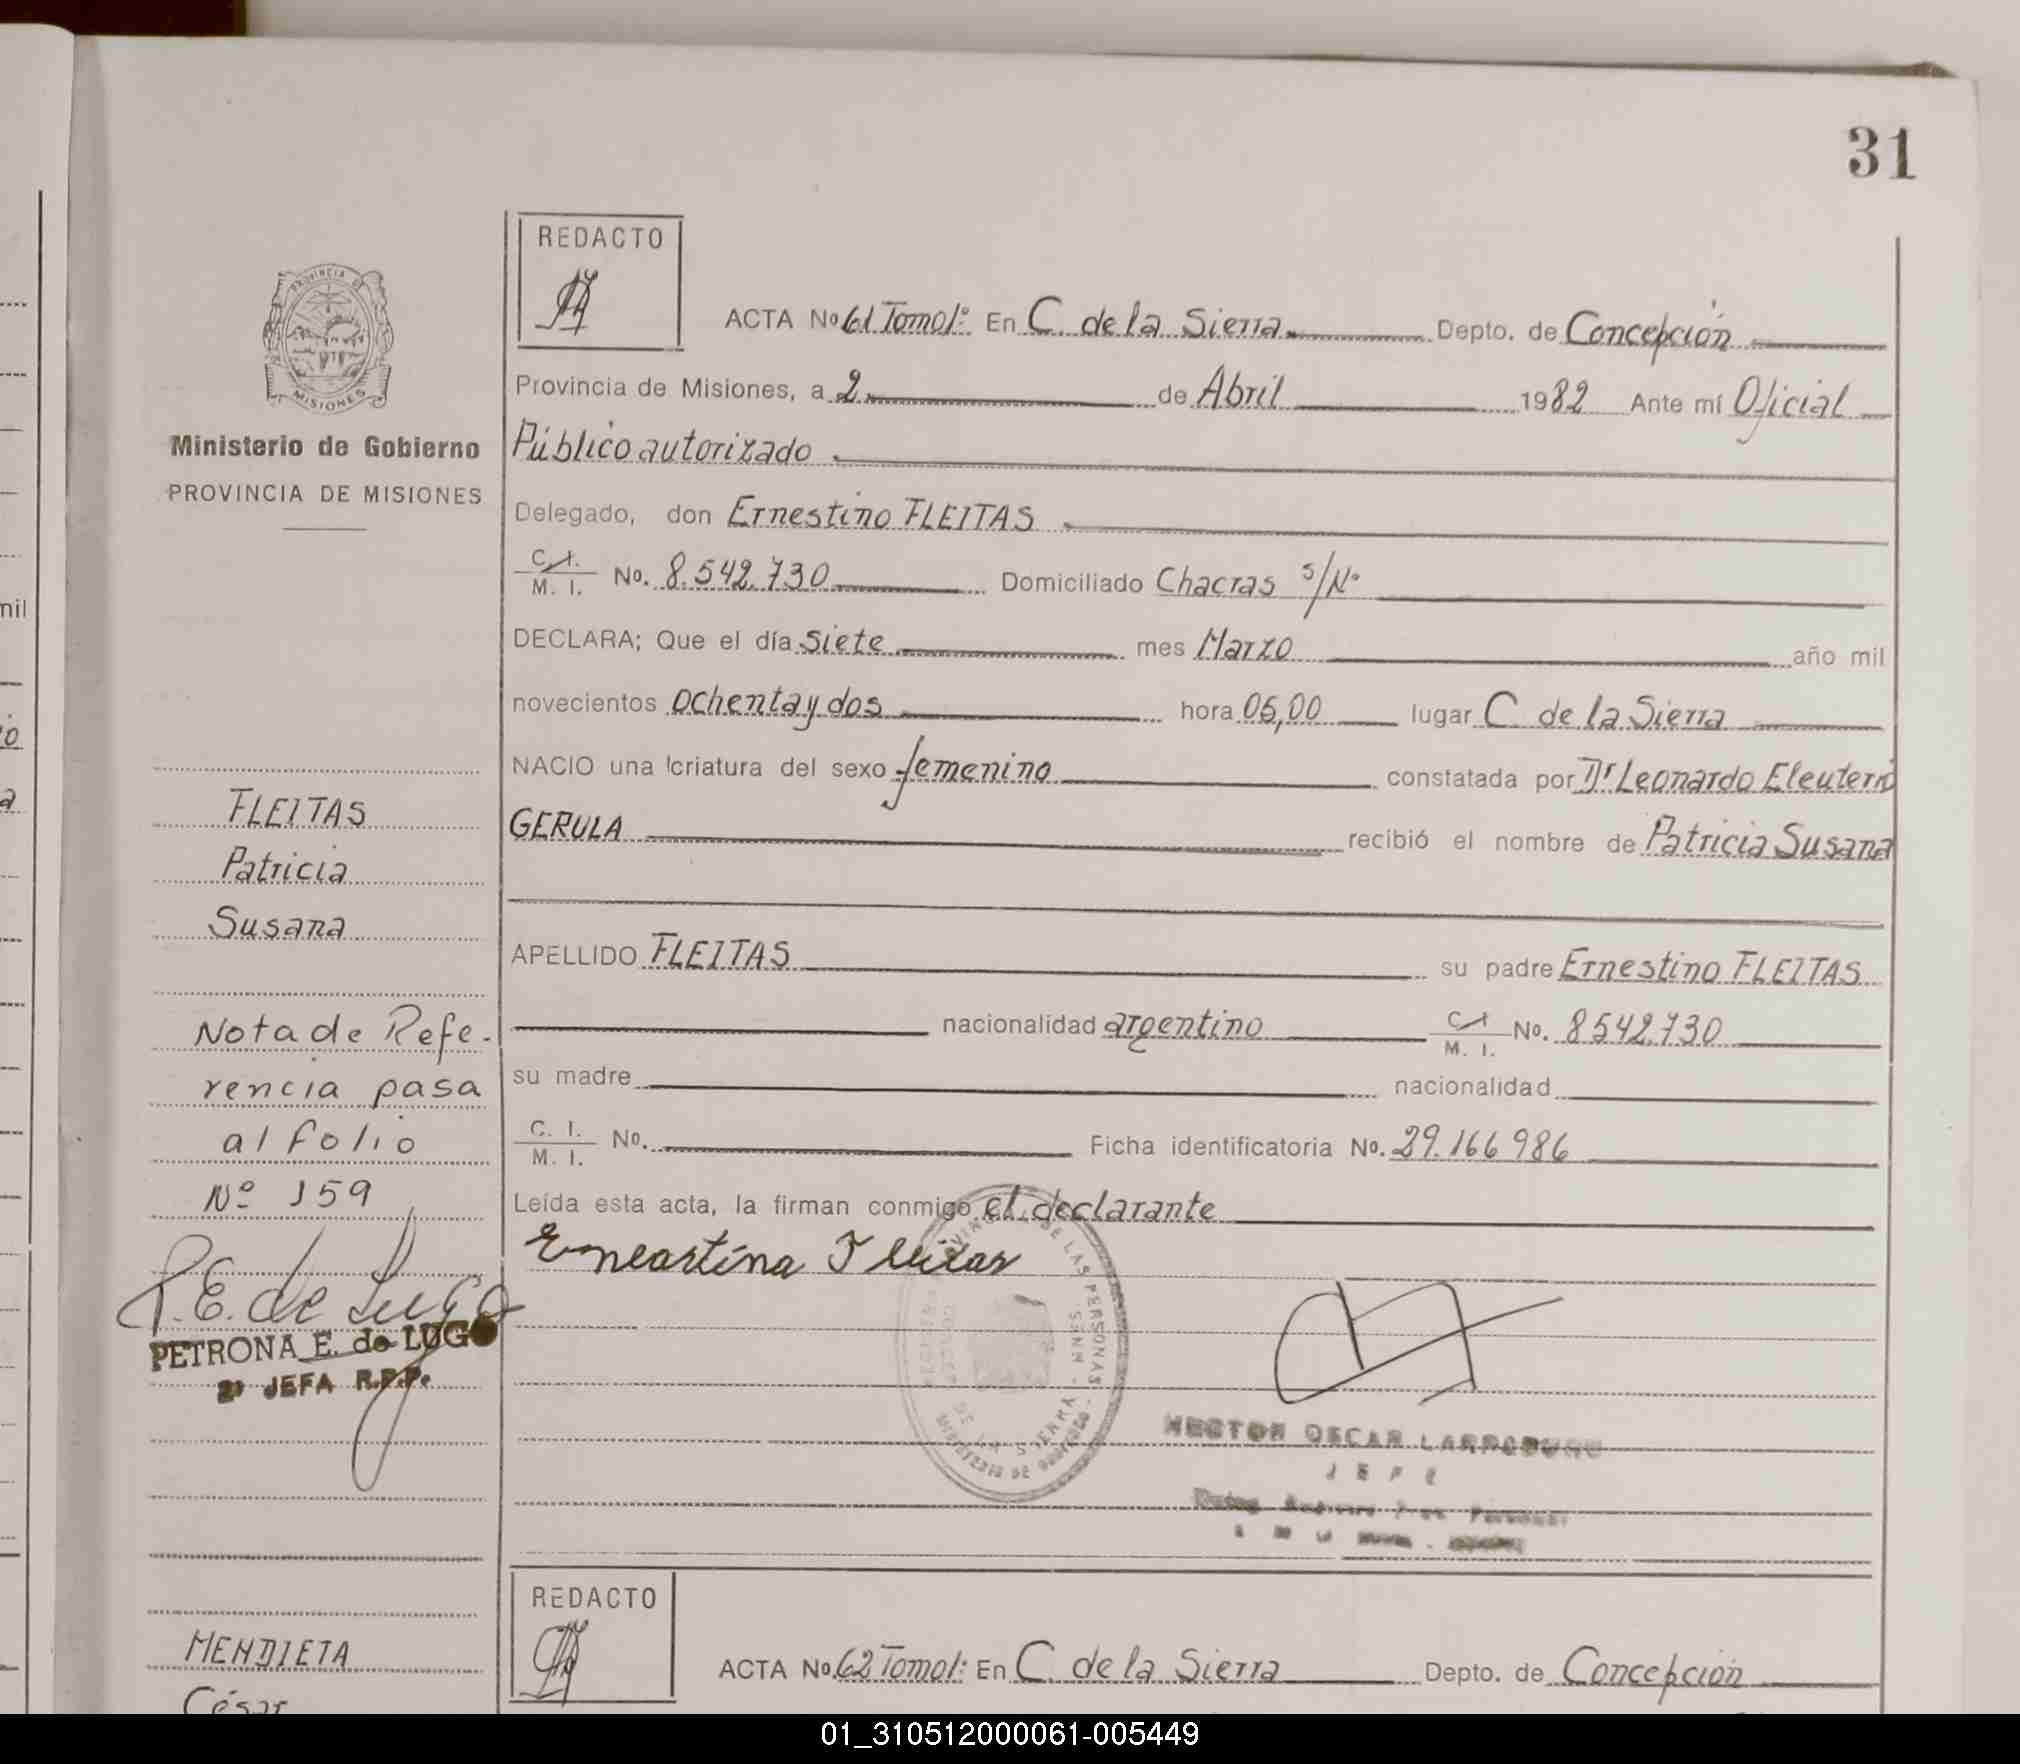 31
REDACTO
ACTA No 61 Tomo 1º En C. de la Sierra Depto. de Concepción
Provincia de Misiones, a 2 de Abril 1982 Ante mí Oficial
Público autorizado
Delegado, don Ernestino FLEITAS
C. I. / M. I. No. 8.542.730 Domiciliado Chacras s/Nº
DECLARA; Que el día siete mes Marzo año mil
novecientos ochenta y dos hora 05,00 lugar C de la Sierra
NACIO una criatura del sexo femenino constatada por Dr Leonardo Eleuterio
GERULA recibió el nombre de Patricia Susana
APELLIDO FLEITAS su padre Ernestino FLEITAS
nacionalidad argentino C I / M. I. No. 8542.730
su madre nacionalidad
C. I. / M. I. No. Ficha identificatoria No. 29.166 986
Leída esta acta, la firman conmigo el declarante
PROVINCIA DE
MISIONES
Ministerio de Gobierno
PROVINCIA DE MISIONES
FLEITAS
Patricia
Susana
Nota de Refe-
rencia pasa
al folio
Nº 159
P. E. de Lugo
PETRONA E. de LUGO
2ª JEFA R.P.P.
DE LAS PERSONAS
HECTOR OSCAR
JEFE
REDACTO
ACTA No. 62 Tomo 1: En C. de la Sierra Depto. de Concepción
MENDIETA
César
nil
01_310512000061-005449